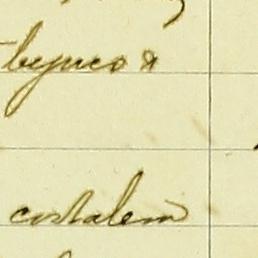 bejuco &
costalem